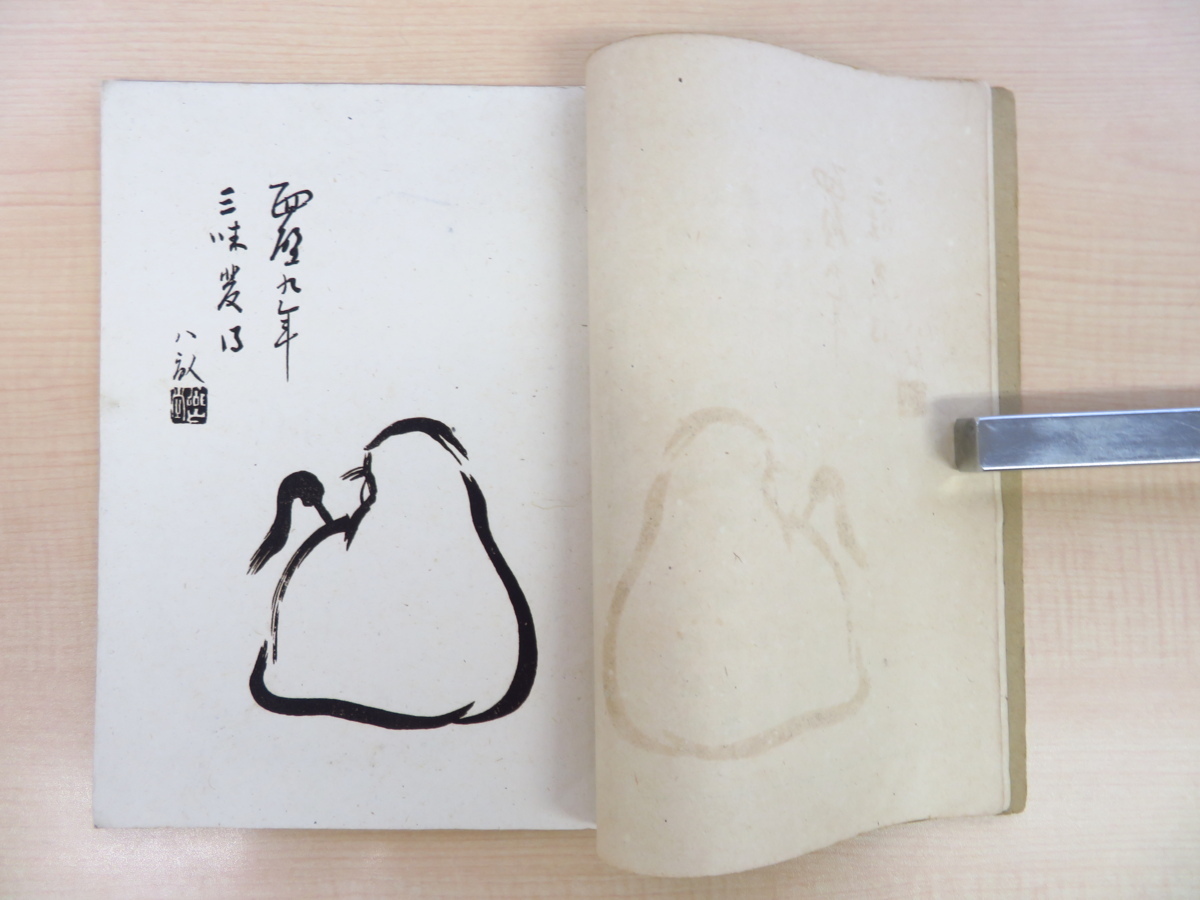 面壁九年
三味発得
八